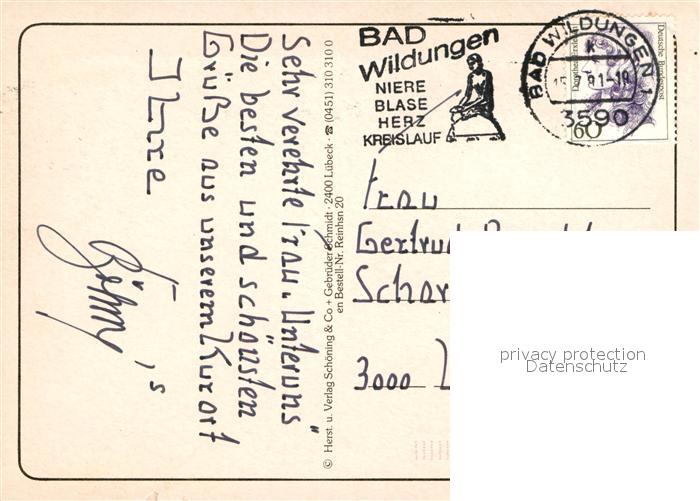 BAD
Wildungen
NIERE
BLASE
HERZ
KREISLAUF
BAD WILDUNGEN 1
3590
Deutsche Bundespost
60
Sehr verehrte Frau
Die besten und schönsten
Grüße aus unserem Kurort
Ihre
© Herst. u. Verlag Schöning & Co + Gebrüder Schmidt · 2400 Lübeck · ☎ (0451) 310 310 0
en Bestell-Nr. Reinhsn 20
Frau
Gertrud
3000
privacy protection
Datenschutz